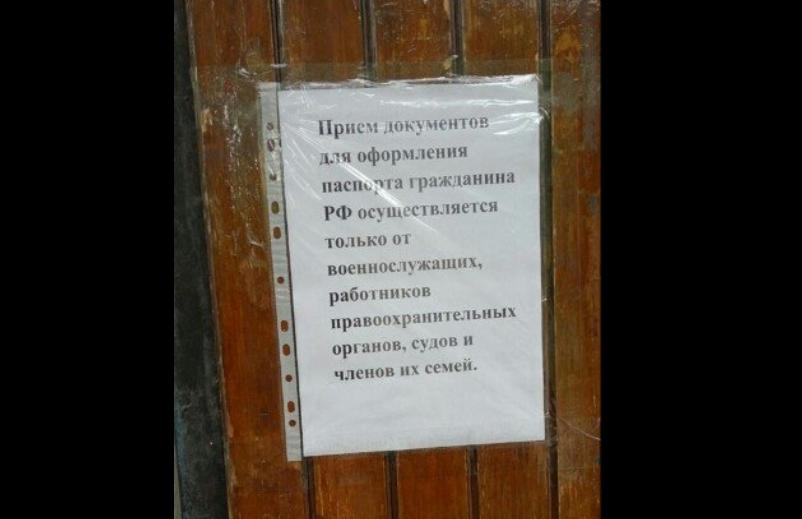 Прием документов
для оформления
паспорта гражданина
РФ осуществляется
только от
военнослужащих,
работников
правоохранительных
органов, судов и
членов их семей.